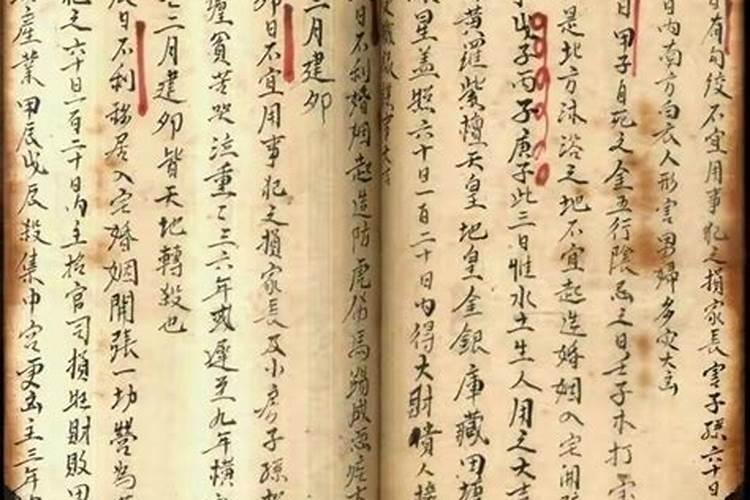 日有勾絞不宜用事犯之損家長害子孫六十日
日內南方白衣人形害男婦多灾大凶
日甲子自死之金五行陰忌之日壬子木打
是北方沐浴之地不宜起造婚姻入宅開
子戊子丙子庚子此三日惟水土生人用之大吉
黃羅紫檀天皇地皇金銀庫藏田塘
星蓋照六十日一百二十日內得大財貴人接
日不利婚姻起造防虎傷馬踢成惡疾
二月建卯
卯日不宜用事犯之損家長及小房子孫
貧苦哭泣重重三六年或遲至九年橫
二月建卯皆天地轉殺也
日不利移居入宅婚姻開張一切營為
犯之六十日一百二十日內主招官司損財敗田
產業甲辰戊辰殺集中宮更凶主三年